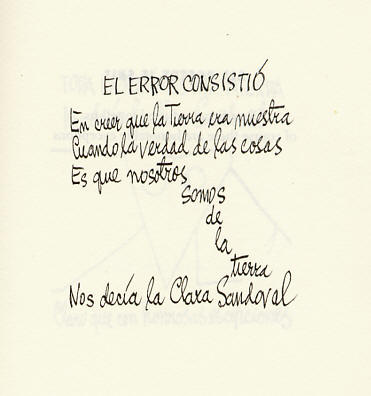 EL ERROR CONSISTIÓ
En creer que la Tierra era nuestra
Cuando la verdad de las cosas
Es que nosotros
somos
de
la
tierra
Nos decía la Clara Sandoval